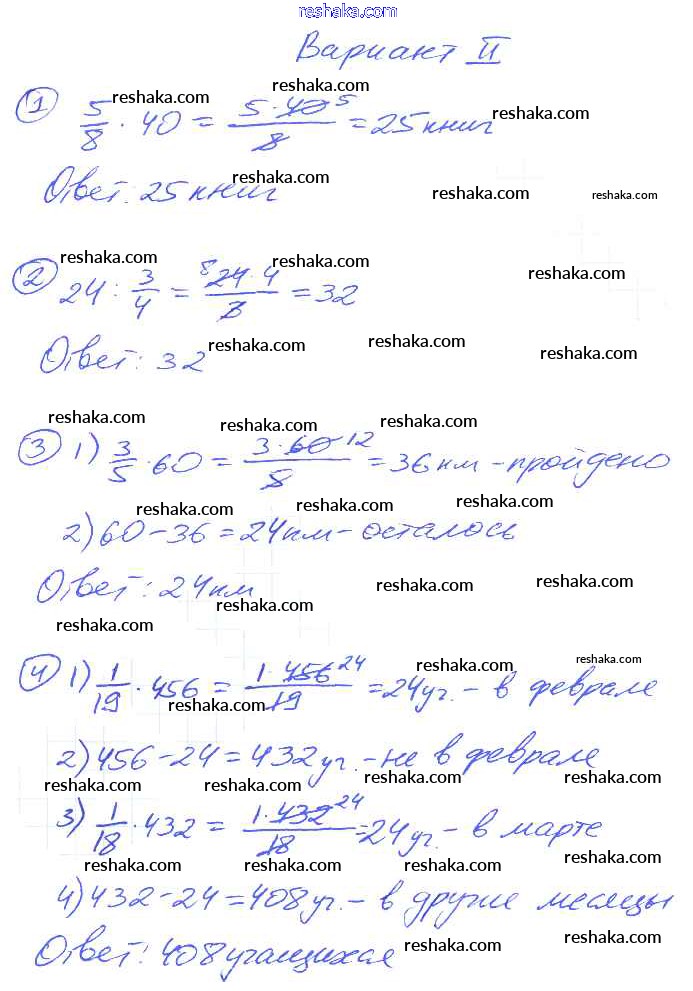 reshaka.com
Вариант II
① 5/8 · 40 = 5 · 40 5 / 8 = 25 книг
reshaka.com reshaka.com reshaka.com
Ответ: 25 книг
reshaka.com reshaka.com reshaka.com
reshaka.com reshaka.com reshaka.com
② 24 : 3/4 = 8 24 · 4 / 3 = 32
reshaka.com reshaka.com reshaka.com
Ответ: 32
reshaka.com reshaka.com reshaka.com
③ 1) 3/5 · 60 = 3 · 60 12 / 5 = 36 км - пройдено
reshaka.com reshaka.com reshaka.com
2) 60 - 36 = 24 км - осталось
reshaka.com reshaka.com reshaka.com
Ответ: 24 км
reshaka.com
reshaka.com reshaka.com
④ 1) 1/19 · 456 = 1 · 456 24 / 19 = 24 уч. - в феврале
reshaka.com reshaka.com reshaka.com
2) 456 - 24 = 432 уч. - не в феврале
reshaka.com reshaka.com reshaka.com reshaka.com
3) 1/18 · 432 = 1 · 432 24 / 18 = 24 уч. - в марте
reshaka.com reshaka.com reshaka.com
4) 432 - 24 = 408 уч. - в другие месяцы
Ответ: 408 учащихся
reshaka.com reshaka.com